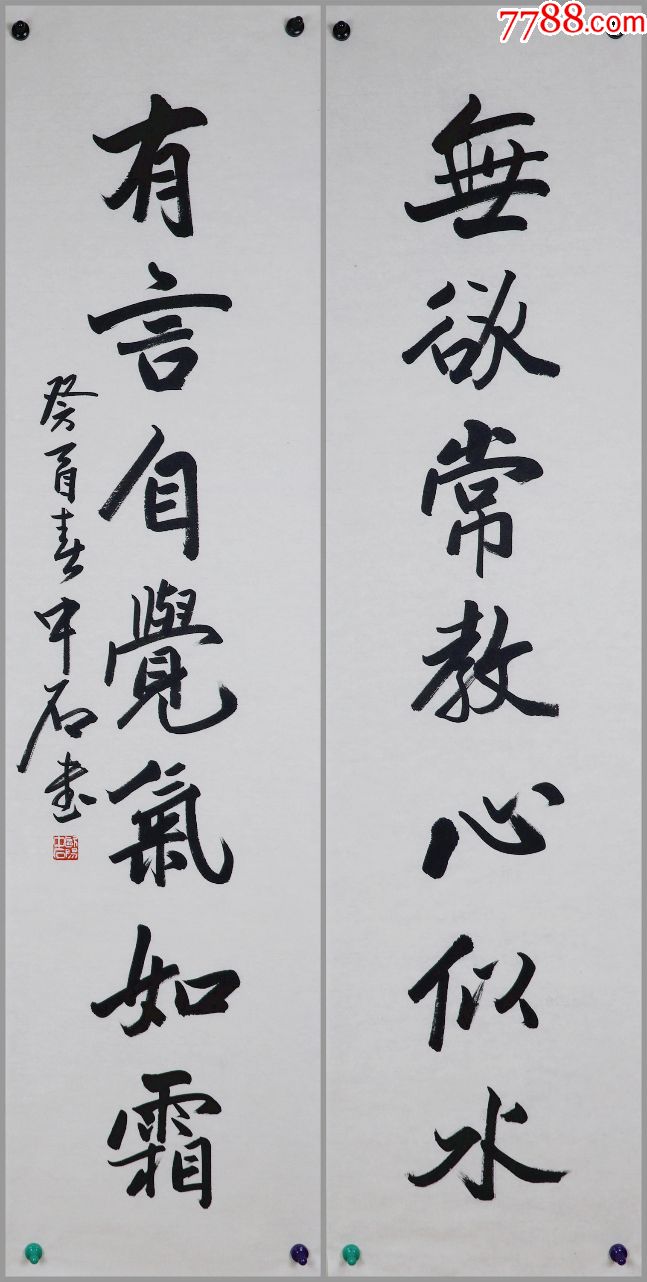 7788.com
無欲常教心似水
有言自覺氣如霜
癸酉春中石书
歐陽中石